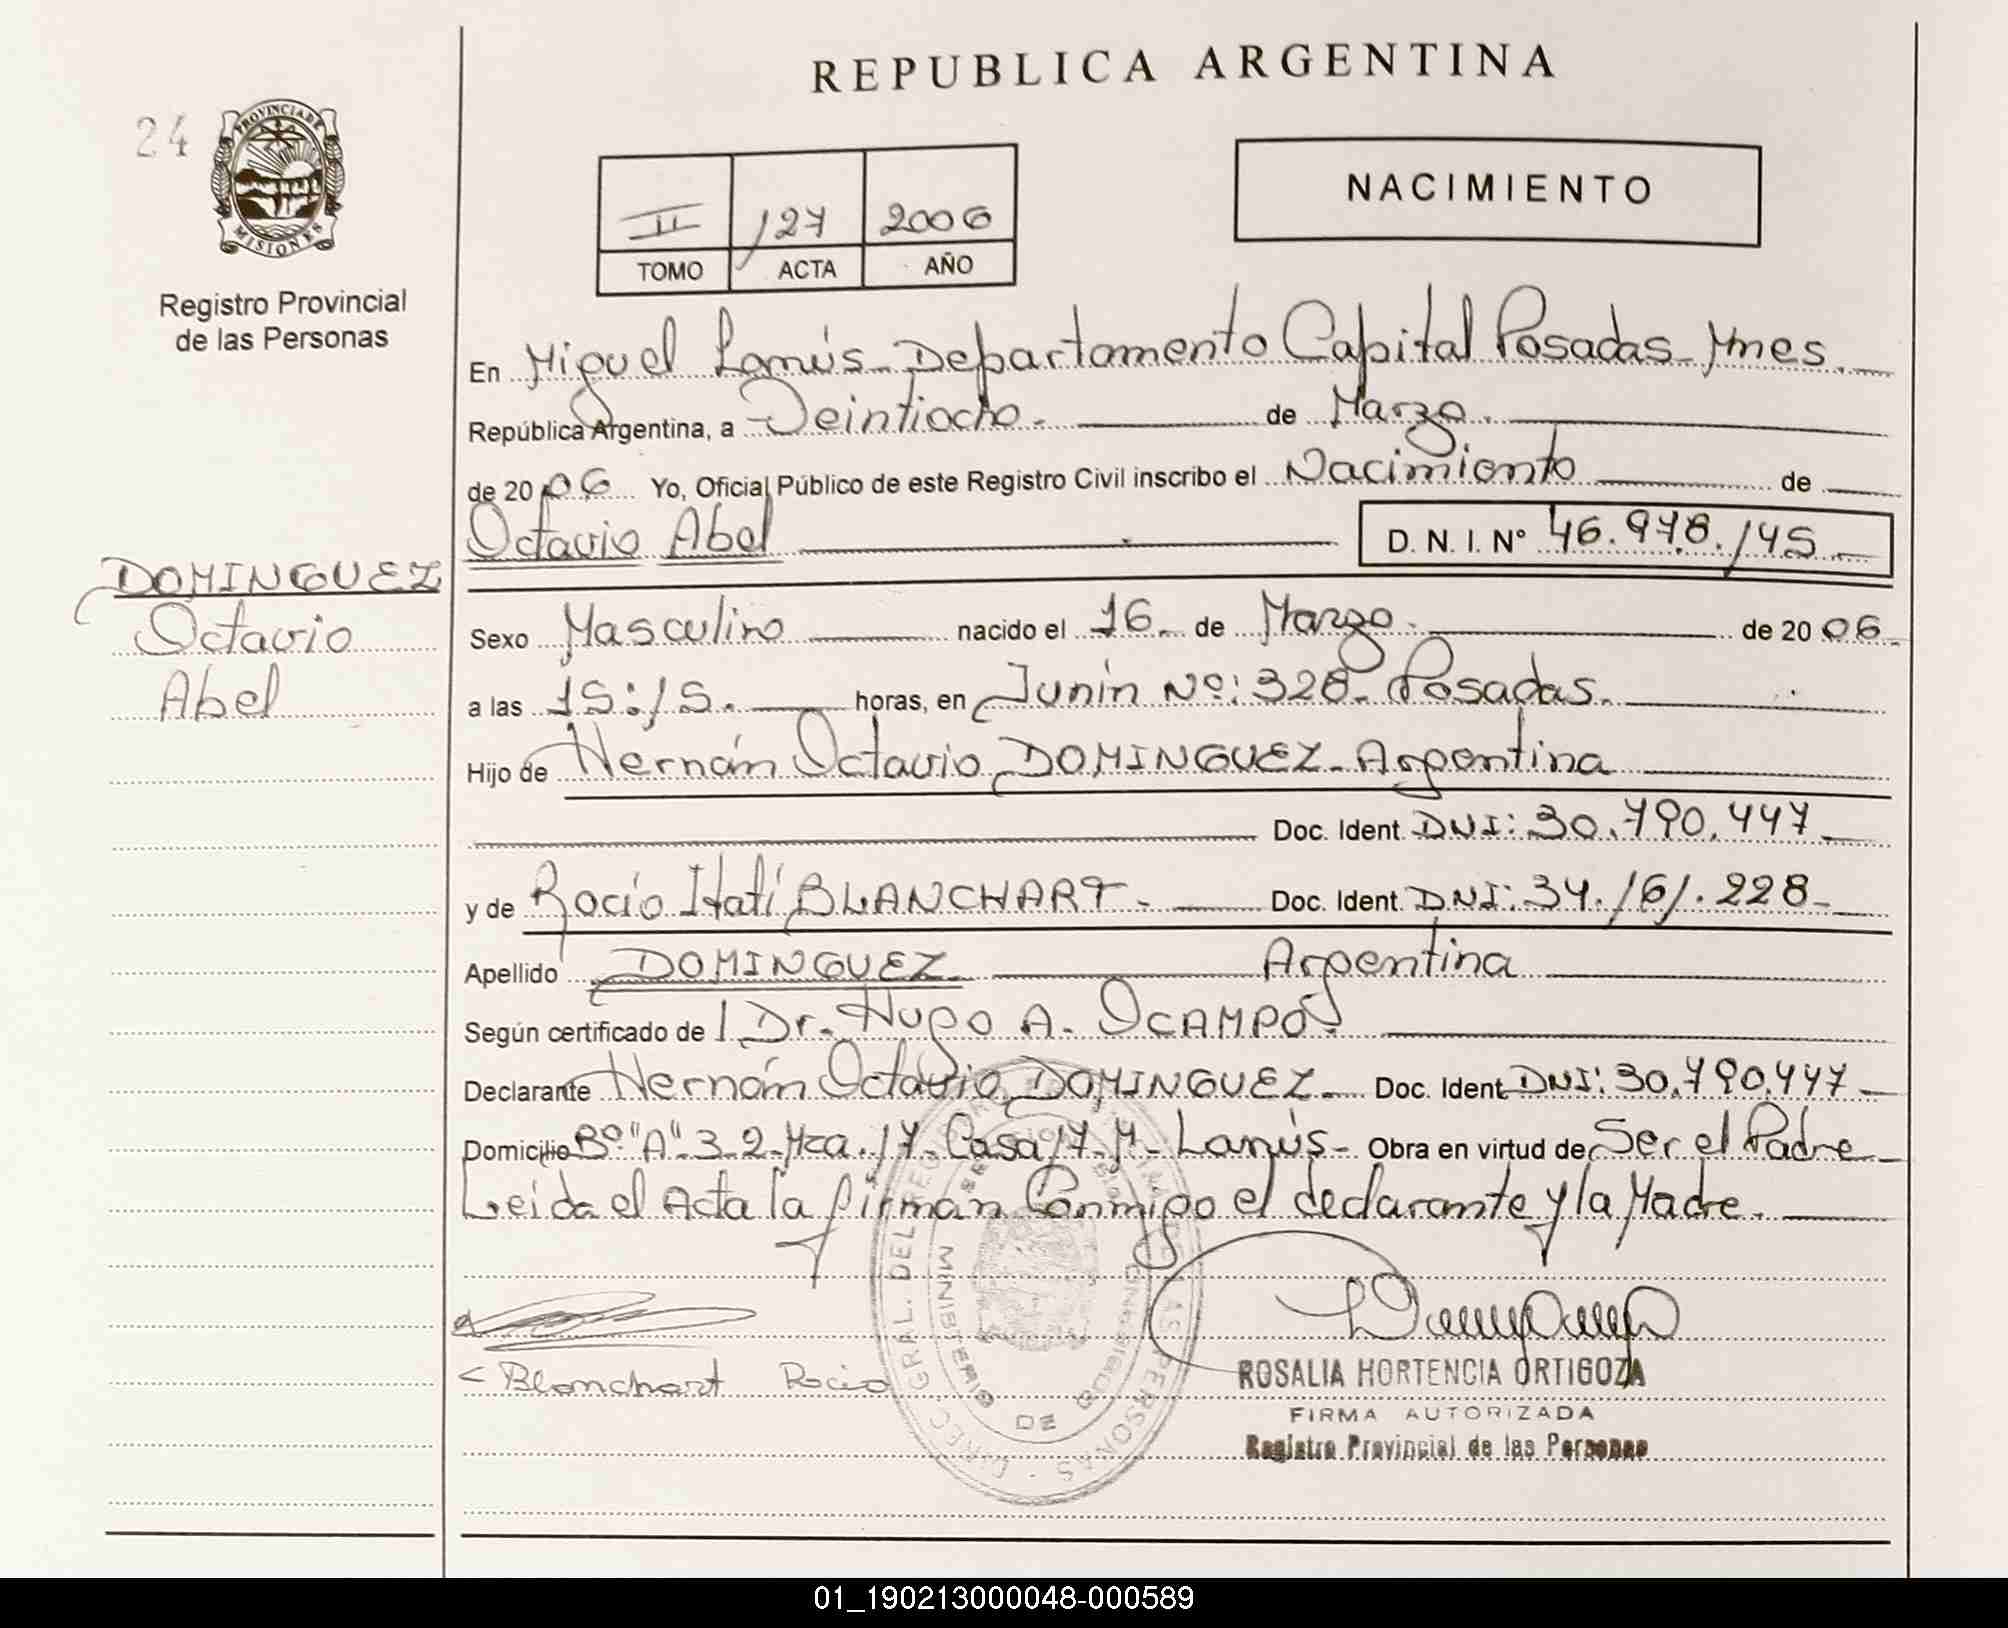 REPUBLICA ARGENTINA
24
PROVINCIA DE
MISIONES
Registro Provincial
de las Personas
II 127 2006
TOMO ACTA AÑO
NACIMIENTO
En Miguel Lanús - Departamento Capital Posadas - Mnes.
República Argentina, a Veintiocho. de Marzo.
de 2006 Yo, Oficial Público de este Registro Civil inscribo el Nacimiento de
Octavio Abel D. N. I. N° 46.978.145
DOMINGUEZ
Octavio
Abel
Sexo Masculino nacido el 16 de Marzo. de 2006.
a las 15:15. horas, en Junín Nº: 328 - Posadas.
Hijo de Hernán Octavio DOMINGUEZ - Argentina
Doc. Ident. DNI: 30.790.447
y de Rocío Itatí BLANCHART - Doc. Ident. DNI: 34.161.228 -
Apellido DOMINGUEZ Argentina
Según certificado de Dr. Hugo A. OCAMPO.
Declarante Hernán Octavio DOMINGUEZ - Doc. Ident. DNI: 30.790.447 -
Domicilio Bº "A" 3-2-Mza. 17 - Casa 17-M- Lanús - Obra en virtud de Ser el Padre
Leida el Acta la firman Conmigo el declarante y la Madre.
Blanchart Rocio
DIREC. GRAL. DEL REGISTRO PROVINCIAL DE LAS PERSONAS
MINISTERIO DE GOBIERNO
ROSALIA HORTENCIA ORTIGOZA
FIRMA AUTORIZADA
Registro Provincial de las Personas
01_190213000048-000589